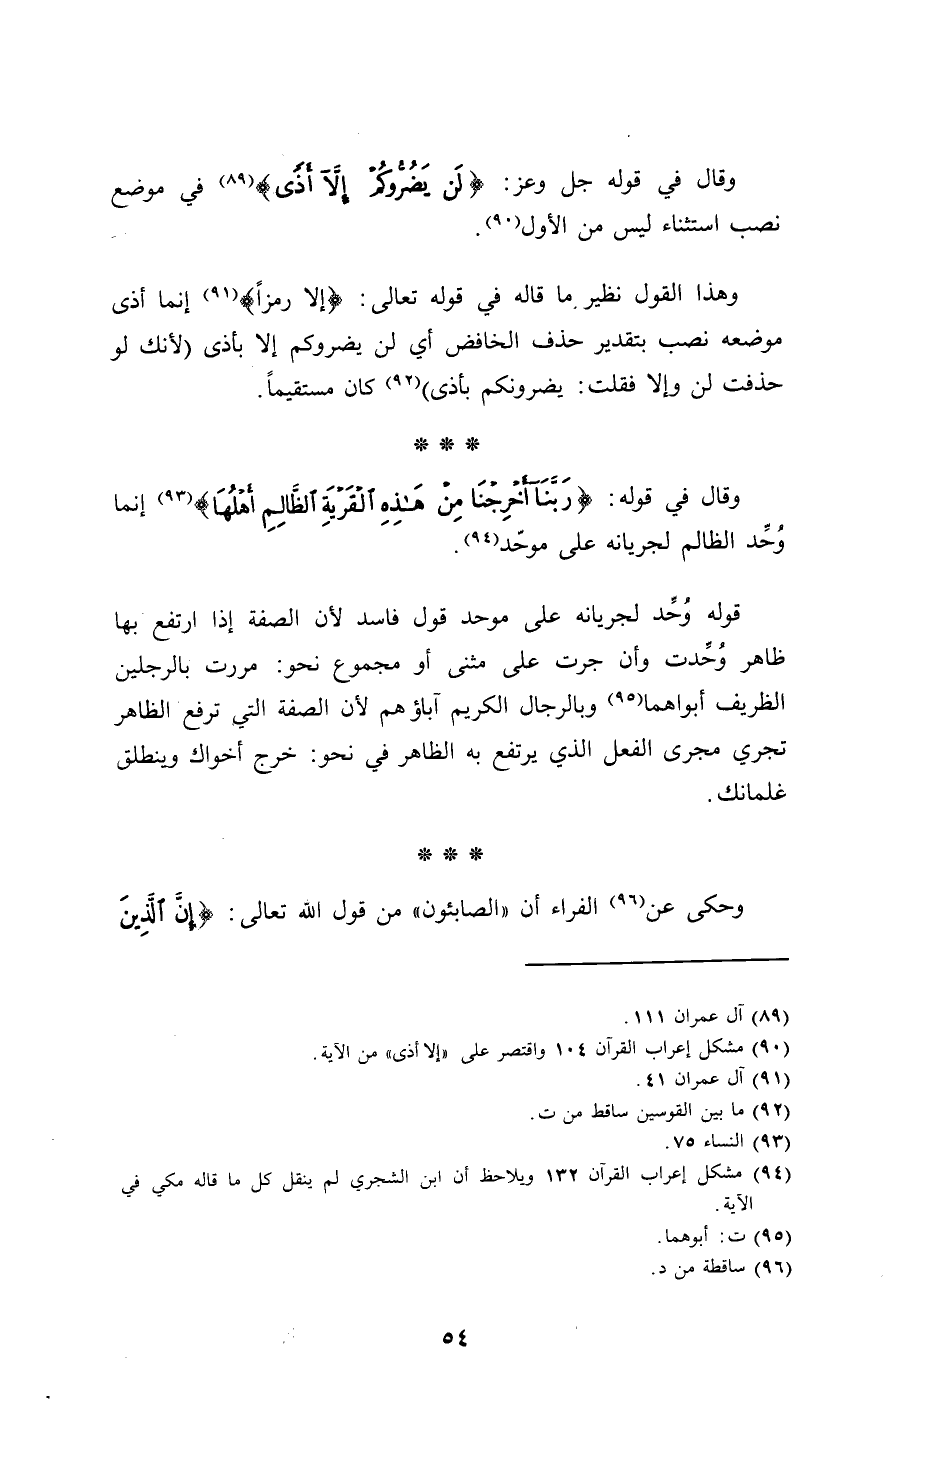 وقال في قوله جل وعز: ﴿لَن يَضُرُّوكُمْ إِلَّآ أَذًى﴾(٨٩) في موضع
نصب استثناء ليس من الأول(٩٠).
وهذا القول نظير ما قاله في قوله تعالى: ﴿إلا رمزاً﴾(٩١) إنما أذى
موضعه نصب بتقدير حذف الخافض أي لن يضروكم إلا بأذى (لأنك لو
حذفت لن وإلا فقلت: يضرونكم بأذى)(٩٢) كان مستقيماً.
* * *
وقال في قوله: ﴿رَبَّنَآ أَخْرِجْنَا مِنْ هَٰذِهِ ٱلْقَرْيَةِ ٱلظَّالِمِ أَهْلُهَا﴾(٩٣) إنما
وُحِّد الظالم لجريانه على موحّد(٩٤).
قوله وُحِّد لجريانه على موحد قول فاسد لأن الصفة إذا ارتفع بها
ظاهر وُحِّدت وأن جرت على مثنى أو مجموع نحو: مررت بالرجلين
الظريف أبواهما(٩٥) وبالرجال الكريم آباؤهم لأن الصفة التي ترفع الظاهر
تجري مجرى الفعل الذي يرتفع به الظاهر في نحو: خرج أخواك وينطلق
غلمانك.
* * *
وحكى عن(٩٦) الفراء أن «الصابئون» من قول الله تعالى: ﴿إِنَّ ٱلَّذِينَ
(٨٩) آل عمران ١١١.
(٩٠) مشكل إعراب القرآن ١٠٤ واقتصر على «إلا أذى» من الآية.
(٩١) آل عمران ٤١.
(٩٢) ما بين القوسين ساقط من ت.
(٩٣) النساء ٧٥.
(٩٤) مشكل إعراب القرآن ١٣٢ ويلاحظ أن ابن الشجري لم ينقل كل ما قاله مكي في
الآية.
(٩٥) ت: أبوهما.
(٩٦) ساقطة من د.
٥٤